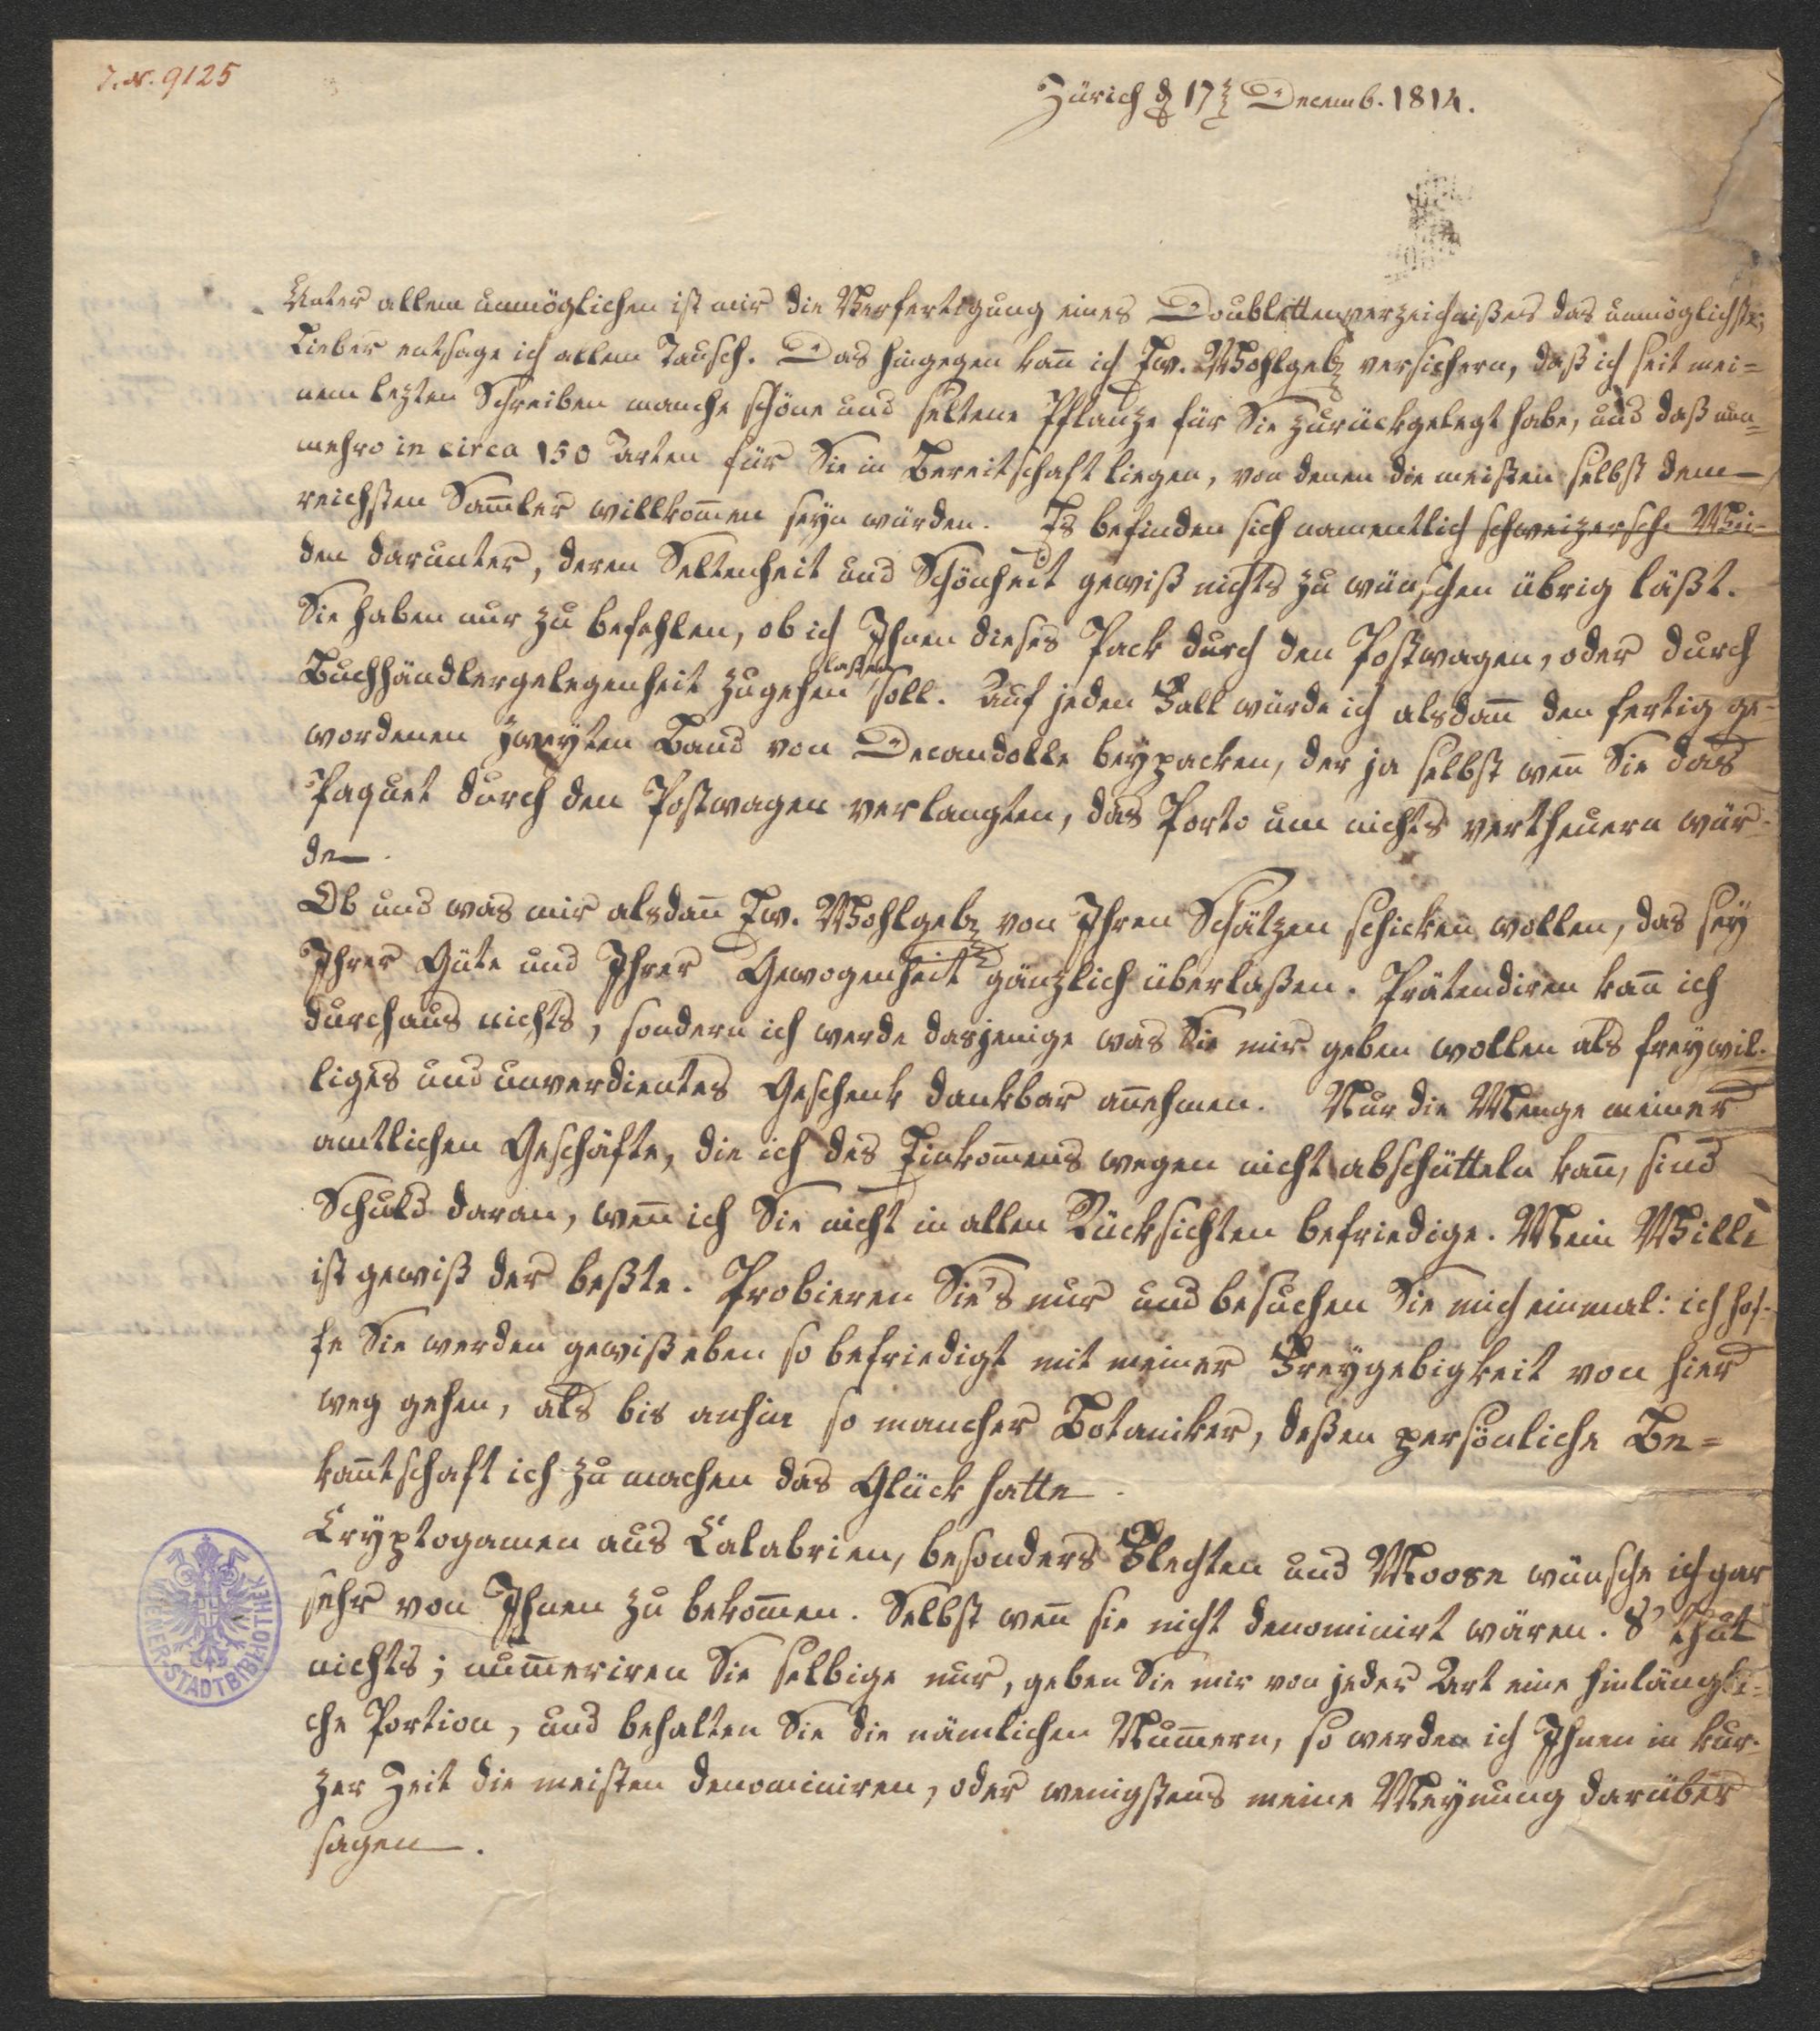 I. N. 9125
Zürich d 17 Decemb. 1814.
Unter allem unmöglichen ist mir die Verfertigung eines Doublettenverzeichnißes das unmöglichste;
Lieber entsage ich allem Tausch. Das hingegen kan̄ ich Ew. Wohlgeb versichern, daß ich seit mei=
nem lezten Schreiben manche schöne und seltene Pflanze für Sie zurückgelegt habe, und daß nun=
mehro in circa 150 Arten für Sie in Bereitschaft liegen, von denen die meisten selbst dem
reichsten Sam̄ler willkom̄en seyn würden. Es befinden sich namentlich schweizersche Wei=
den darunter, deren Seltenheit und Schönheit gewiß nichts zu wünschen übrig läßt.
Sie haben nur zu befehlen, ob ich Ihnen dieses Pack durch den Postwagen, oder durch
Buchhändlergelegenheit zugehen laßen soll. Auf jeden Fall würde ich alsdan̄ den fertig ge=
wordenen zweyten Band von Decandolle beypacken, der ja selbst wen̄ Sie das
Paquet durch den Postwagen verlangten, das Porto um nichts vertheuern wür=
de.
Ob und was mir alsdan̄ Ew. Wohlgeb von Ihren Schätzen schicken wollen, das sey
Ihrer Güte und Ihrer Gewogenheit gänzlich überlaßen. Prätendiren kan̄ ich
durchaus nichts, sondern ich werde dasjenige was Sie mir geben wollen als freywil=
liges und unverdientes Geschenk dankbar an̄ehmen. Nur die Menge meiner
amtlichen Geschäfte, die ich des Einkom̄ens wegen nicht abschütteln kan̄, sind
Schuld daran, wen̄ ich Sie nicht in allen Rücksichten befriedige. Mein Wille
ist gewiß der beßte. Probieren Sie's nur und besuchen Sie mich einmal: ich hof=
fe Sie werden gewiß eben so befriedigt mit meiner Freygebigkeit von hier
weg gehen, als bis anhin so mancher Botaniker, deßen persönliche Be=
kan̄tschaft ich zu machen das Glück hatte.
Cryptogamen aus Calabrien, besonders Flechten und Moose wünsche ich gar
sehr von Ihnen zu bekom̄en. Selbst wen̄ sie nicht denominirt wären. S' thut
nichts; num̄eriren Sie selbige nur, geben Sie mir von jeder Art eine hinlängli=
che Portion, und behalten Sie die nämlichen Num̄ern, so werde ich Ihnen in kur=
zer Zeit die meisten denominiren, oder wenigstens meine Meynung darüber
sagen.
WIENER-STADTBIBLIOTHEK